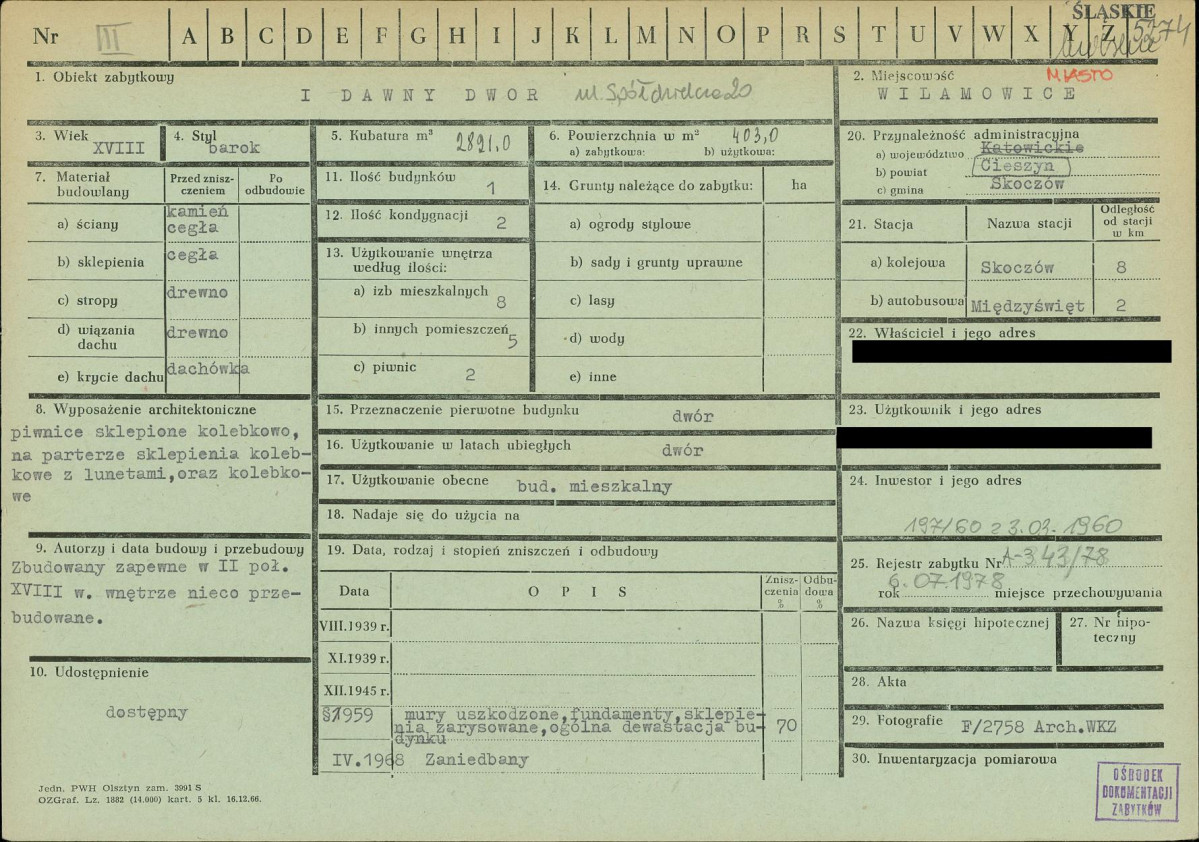 ŚLĄSKIE
5274
Nr III A B C D E F G H I J K L M N O P R S T U V W X Y Z
1. Obiekt zabytkowy
I DAWNY DWOR ul. Spółdzielcza 20
2. Miejscowość MIASTO
WILAMOWICE
3. Wiek
XVIII
4. Styl
barok
5. Kubatura m³ 2821.0
6. Powierzchnia w m² 403,0
a) zabytkowa: b) użytkowa:
7. Materiał budowlany
Przed znisz-
czeniem
Po
odbudowie
a) ściany kamień
cegła
b) sklepienia cegła
c) stropy drewno
d) wiązania
dachu drewno
e) krycie dachu dachówka
8. Wyposażenie architektoniczne
piwnice sklepione kolebkowo,
na parterze sklepienia koleb-
kowe z lunetami,oraz kolebko-
we
9. Autorzy i data budowy i przebudowy
Zbudowany zapewne w II poł.
XVIII w. wnętrze nieco prze-
budowane.
10. Udostępnienie
dostępny
11. Ilość budynków 1
12. Ilość kondygnacji 2
13. Użytkowanie wnętrza
według ilości:
a) izb mieszkalnych 8
b) innych pomieszczeń 5
c) piwnic 2
14. Grunty należące do zabytku: ha
a) ogrody stylowe
b) sady i grunty uprawne
c) lasy
d) wody
e) inne
15. Przeznaczenie pierwotne budynku dwór
16. Użytkowanie w latach ubiegłych dwór
17. Użytkowanie obecne bud. mieszkalny
18. Nadaje się do użycia na
19. Data, rodzaj i stopień zniszczeń i odbudowy
Data OPIS Znisz-
czenia
%
Odbu-
dowa
%
VIII.1939 r.
XI.1939 r.
XII.1945 r.
1959 mury uszkodzone,fundamenty,sklepie-
nia zarysowane,ogólna dewastacja bu-
dynku 70
IV.1968 Zaniedbany
20. Przynależność administracyjna
a) województwo Katowickie
b) powiat Cieszyn
c) gmina Skoczów
21. Stacja Nazwa stacji Odległość
od stacji
w km
a) kolejowa Skoczów 8
b) autobusowa Międzyświęt 2
22. Właściciel i jego adres
23. Użytkownik i jego adres
24. Inwestor i jego adres
197/60 z 3.03.1960
25. Rejestr zabytku Nr A-343/78
rok 6.07.1978 miejsce przechowywania
26. Nazwa księgi hipotecznej
27. Nr hipo-
teczny
28. Akta
29. Fotografie F/2758 Arch.WKZ
30. Inwentaryzacja pomiarowa
OŚRODEK
DOKUMENTACJI
ZABYTKÓW
Jedn. PWH Olsztyn zam. 3991 S
OZGraf. Lz. 1882 (14.000) kart. 5 kl. 16.12.66.